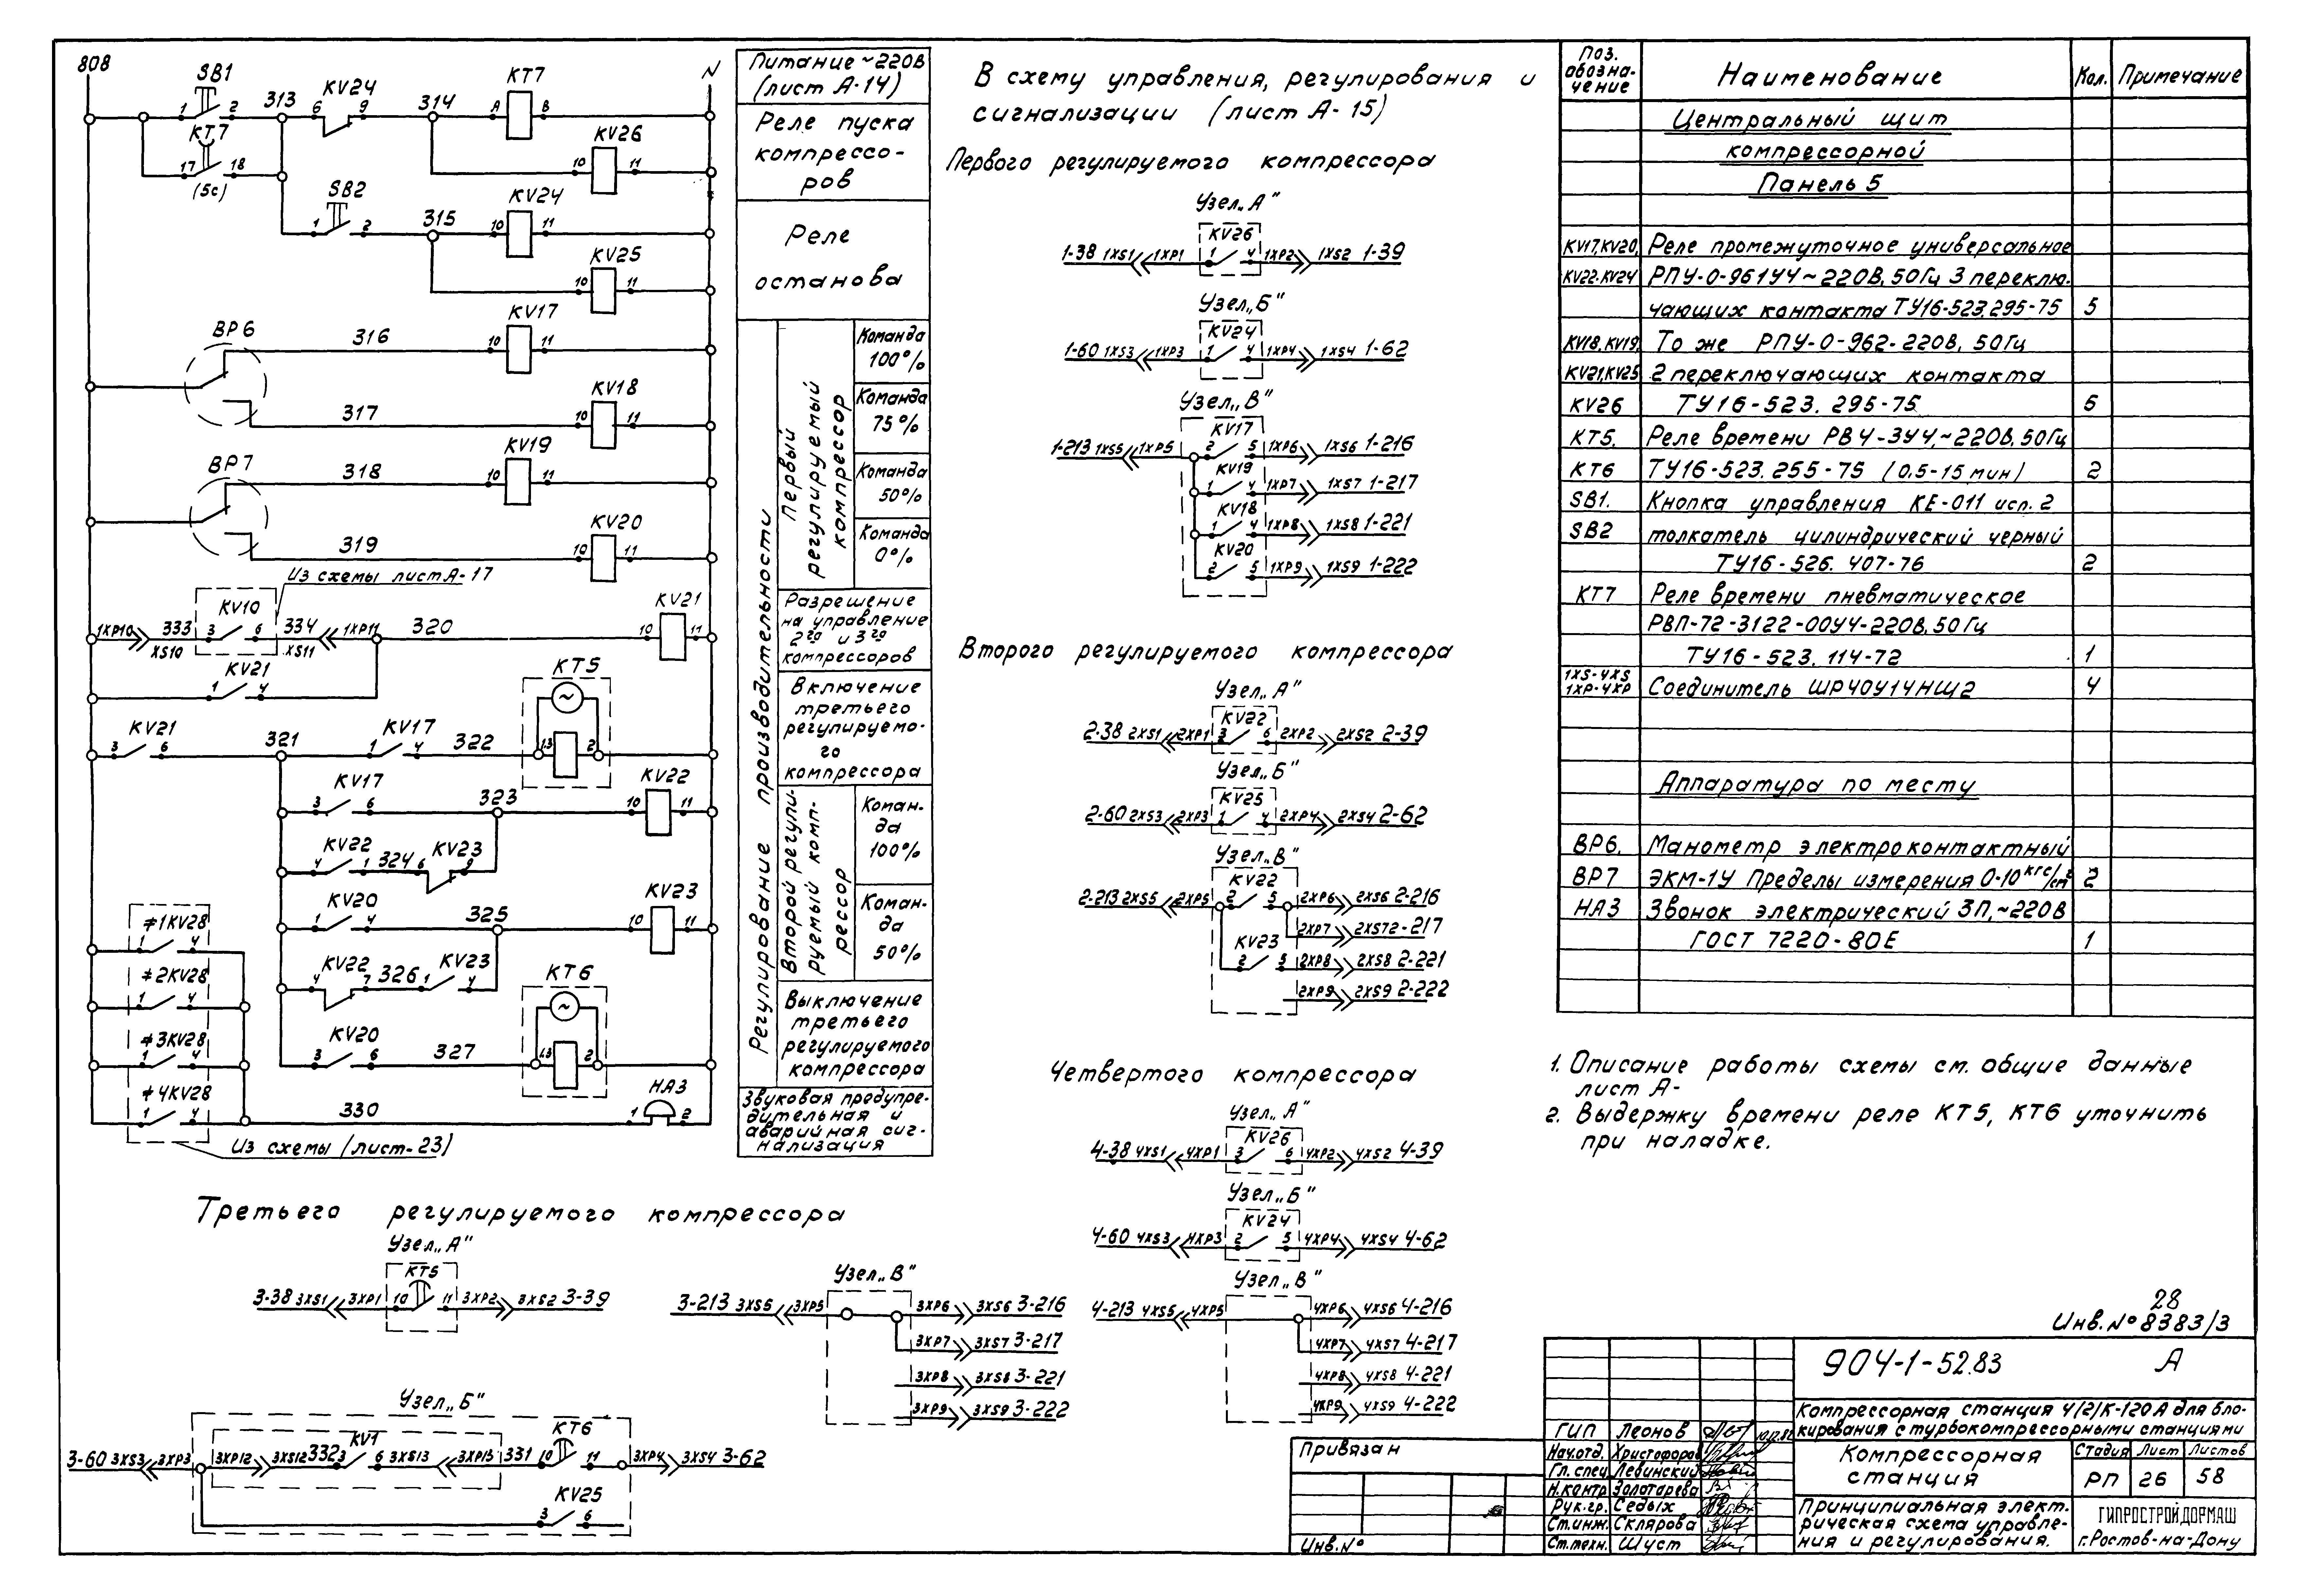 808
N
SB1
1
2
313
KV24
6
9
314
KT7
A
B
KT7
17
18
(5с)
KV26
10
11
SB2
1
2
315
KV24
10
11
KV25
10
11
BP6
316
KV17
10
11
317
KV18
10
11
BP7
318
KV19
10
11
319
KV20
10
11
Из схемы лист А-17
1XP10
XS10
333
KV10
3
6
334
XS11
1XP11
320
KV21
10
11
KV21
1
4
KV21
3
6
321
KV17
1
4
322
KT5
1.3
2
KV17
3
6
323
KV22
10
11
KV22
4
1
324
KV23
6
9
KV20
1
4
325
KV23
10
11
KV22
4
7
326
KV23
1
4
KV20
3
6
327
KT6
1.3
2
≠1KV28
1
4
≠2KV28
1
4
≠3KV28
1
4
≠4KV28
1
4
330
НАЗ
1
2
Из схемы (лист-23)
Питание ~220В
(лист А-14)
Реле пуска
компрессо-
ров
Реле
останова
Регулирование производительности
Первый
регулируемый
компрессор
Команда
100%
Команда
75%
Команда
50%
Команда
0%
Разрешение
на управление
2го и 3го
компрессоров
Включение
третьего
регулируемо-
го
компрессора
Второй регули-
руемый комп-
рессор
Коман-
да
100%
Коман-
да
50%
Выключение
третьего
регулируемого
компрессора
Звуковая предупре-
дительная и
аварийная сиг-
нализация
В схему управления, регулирования и
сигнализации (лист А-15)
Первого регулируемого компрессора
Узел „А"
KV26
1-38 1XS1 1XP1 1 4 1XP2 1XS2 1-39
Узел „Б"
KV24
1-60 1XS3 1XP3 1 4 1XP4 1XS4 1-62
Узел „В"
KV17
1-213 1XS5 1XP5 2 5 1XP6 1XS6 1-216
KV19
1 4 1XP7 1XS7 1-217
KV18
1 4 1XP8 1XS8 1-221
KV20
2 5 1XP9 1XS9 1-222
Второго регулируемого компрессора
Узел „А"
KV22
2-38 2XS1 2XP1 3 6 2XP2 2XS2 2-39
Узел „Б"
KV25
2-60 2XS3 2XP3 1 4 2XP4 2XS4 2-62
Узел „В"
KV22
2-213 2XS5 2XP5 2 5 2XP6 2XS6 2-216
2XP7 2XS7 2-217
KV23
2 5 2XP8 2XS8 2-221
2XP9 2XS9 2-222
Четвертого компрессора
Узел „А"
KV26
4-38 4XS1 4XP1 3 6 4XP2 4XS2 4-39
Узел „Б"
KV24
4-60 4XS3 4XP3 2 5 4XP4 4XS4 4-62
Узел „В"
4-213 4XS5 4XP5 4XP6 4XS6 4-216
4XP7 4XS7 4-217
4XP8 4XS8 4-221
4XP9 4XS9 4-222
Третьего регулируемого компрессора
Узел „А"
KT5
3-38 3XS1 3XP1 10 11 3XP2 3XS2 3-39
Узел „В"
3-213 3XS5 3XP5 3XP6 3XS6 3-216
3XP7 3XS7 3-217
3XP8 3XS8 3-221
3XP9 3XS9 3-222
Узел „Б"
KV1
KT6
3-60 3XS3 3XP3 3XP12 3XS12 332 3 6 3XS13 3XP13 331 10 11 3XP4 3XS4 3-62
KV25
3 6
Поз. обозна- чение
Наименование
Кол.
Примечание
Центральный щит
компрессорной
Панель 5
KV17, KV20, Реле промежуточное универсальное
KV22-KV24 РПУ-0-961У4~220В, 50Гц 3 переклю-
чающих контакта ТУ16-523.295-75 5
KV18, KV19, То же РПУ-0-962-220В, 50Гц
KV21, KV25 2 переключающих контакта
KV26 ТУ16-523.295-75 5
KT5. Реле времени РВ4-3У4,~220В, 50Гц
KT6 ТУ16-523.255-75 (0.5-15 мин) 2
SB1. Кнопка управления КЕ-011 исп. 2
SB2 толкатель цилиндрический черный
ТУ16-526.407-76 2
KT7 Реле времени пневматическое
РВП-72-3122-00У4-220В, 50Гц
ТУ16-523.114-72 1
1XS-4XS
1XP-4XP Соединитель ШР40У14НЩ2 4
Аппаратура по месту
BP6, Манометр электроконтактный
BP7 ЭКМ-1У Пределы измерения 0-10 кгс/см² 2
НАЗ Звонок электрический ЗП,~220В
ГОСТ 7220-80Е 1
1. Описание работы схемы см. общие данные
лист А-
2. Выдержку времени реле КТ5, КТ6 уточнить
при наладке.
28
Инв. № 8383/3
904-1-52.83 А
Компрессорная станция 4(2)К-120А для бло-
кирования с турбокомпрессорными станциями
Компрессорная
станция
Стадия Лист Листов
РП 26 58
Принципиальная элект-
рическая схема управле-
ния и регулирования.
ГИПРОСТРОЙДОРМАШ
г. Ростов-на-Дону
ГИП Леонов
Нач.отд. Христофоров
Гл. спец Левинский
Н.контр Золотарева
Рук.гр. Седых
Ст.инж. Склярова
Ст.техн. Шуст
Привязан
Инв. №